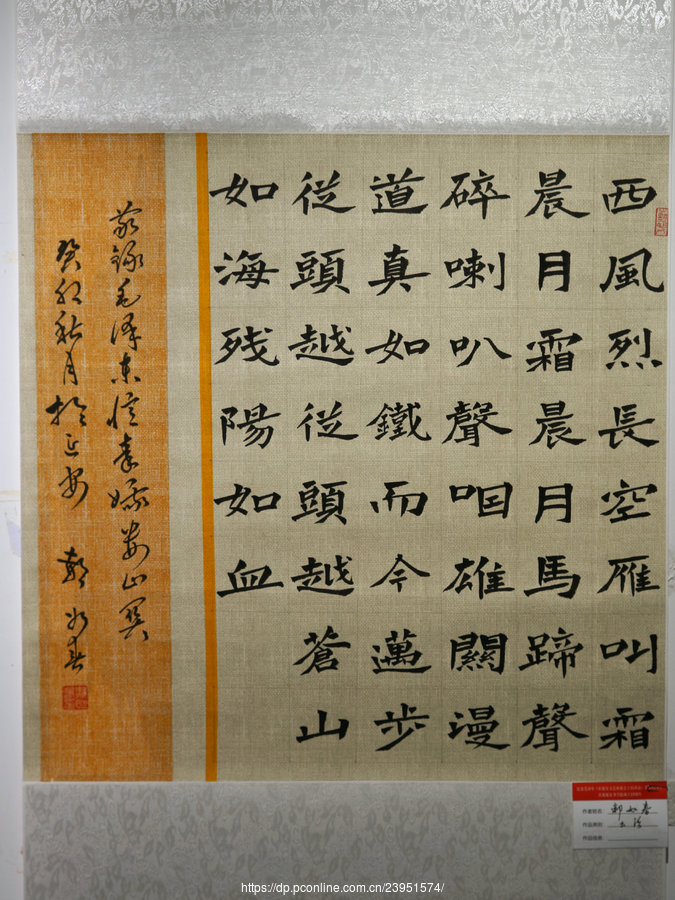 西風烈長空雁叫霜
晨月霜晨月馬蹄聲
碎喇叭聲咽雄關漫
道真如鐵而今邁步
從頭越從頭越蒼山
如海残陽如血
敬錄毛澤東憶秦娥婁山關
癸卯秋月於延安 郭如春
作者姓名:
作品类别: 书法
作品规格:
https://dp.pconline.com.cn/23951574/